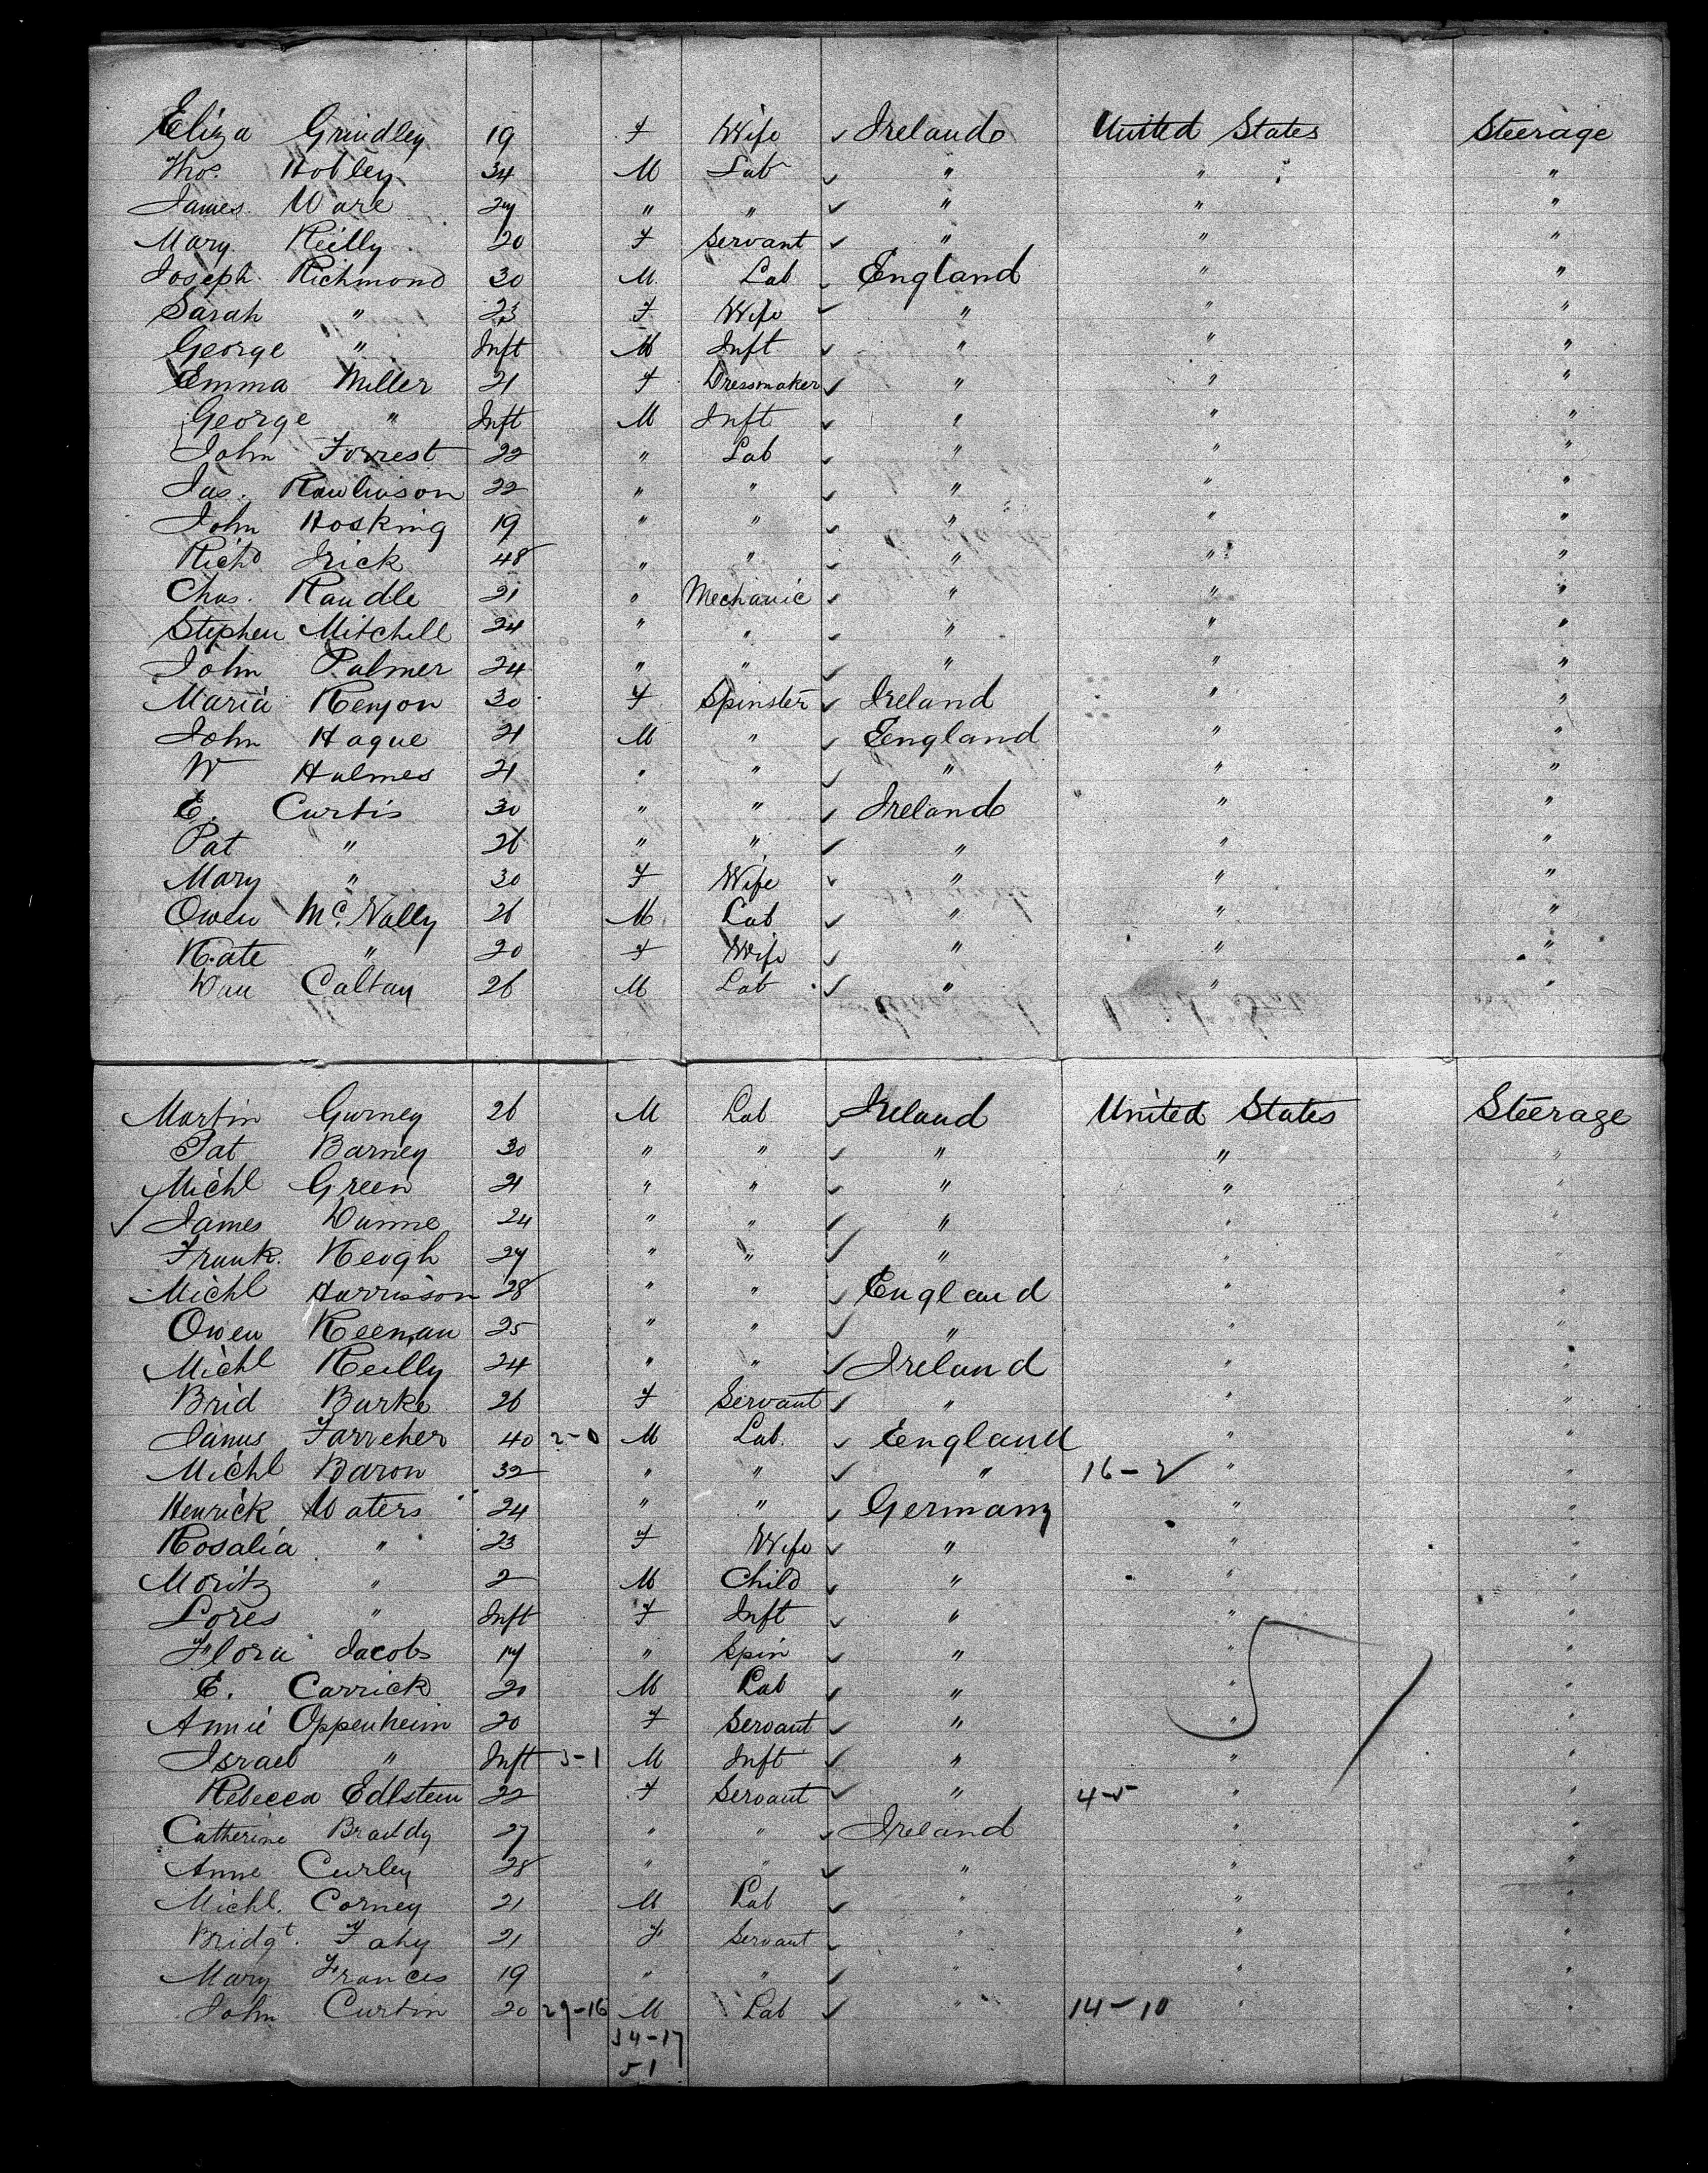 Eliza Grindley 19 F Wife ✓ Ireland United States Steerage
Thos. Hobley 34 M Lab ✓ " " "
James Ware 27 " " ✓ " " "
Mary Reilly 20 F Servant ✓ " " "
Joseph Richmond 30 M Lab ✓ England " "
Sarah " 23 F Wife ✓ " " "
George " Inft M Inft ✓ " " "
Emma Miller 21 F Dressmaker ✓ " " "
George " Inft M Inft ✓ " " "
John Forrest 22 " Lab ✓ " " "
Jas. Rawlinson 22 " " ✓ " " "
John Hosking 19 " " ✓ " " "
Richd Irick 48 " " ✓ " " "
Chas. Randle 21 " Mechanic ✓ " " "
Stephen Mitchell 24 " " ✓ " " "
John Palmer 24 " " ✓ " " "
Maria Kenyon 30 F Spinster ✓ Ireland " "
John Hague 21 M " ✓ England " "
W Holmes 21 " " ✓ " " "
E. Curtis 30 " " ✓ Ireland " "
Pat " 26 " " ✓ " " "
Mary " 30 F Wife ✓ " " "
Owen McNally 26 M Lab ✓ " " "
Kate " 20 F Wife ✓ " " "
Dan Caltan 26 M Lab ✓ " " "
Martin Gurney 26 M Lab ✓ Ireland United States Steerage
Pat Barney 30 " " ✓ " " "
Michl Green 21 " " ✓ " " "
✓ James Dunne 24 " " ✓ " " "
Frank. Keogh 27 " " ✓ " " "
Michl Harrisson 28 " " ✓ England " "
Owen Keenan 25 " " ✓ " " "
Michl Reilly 24 " " ✓ Ireland " "
Brid Burke 26 F Servant ✓ " " "
James Farreher 40 2-0 M Lab. ✓ England " "
Michl Baron 32 " " ✓ " 16-2 " "
Henrick Waters 24 " " ✓ Germany " "
Rosalia " 23 F Wife ✓ " " "
Moritz " 2 M Child ✓ " " "
Lores " Inft F Inft ✓ " " "
Flora Jacobs 17 " Spin ✓ " " "
E. Carrick 20 M Lab ✓ " " "
Annie Oppenheim 20 F Servant ✓ " " "
Israel " Inft 3-1 M Inft ✓ " " "
Rebecca Edlstein 22 F Servant ✓ " 4-5 " "
Catherine Braddy 27 " " ✓ Ireland " "
Anne Curley 28 " " ✓ " " "
Michl. Corney 21 M Lab ✓ " " "
Bridgt. Fahy 21 F Servant ✓ " " "
Mary Frances 19 " " ✓ " " "
John Curtin 20 29-16 M Lab ✓ " 14-10 " "
34-17
51
51